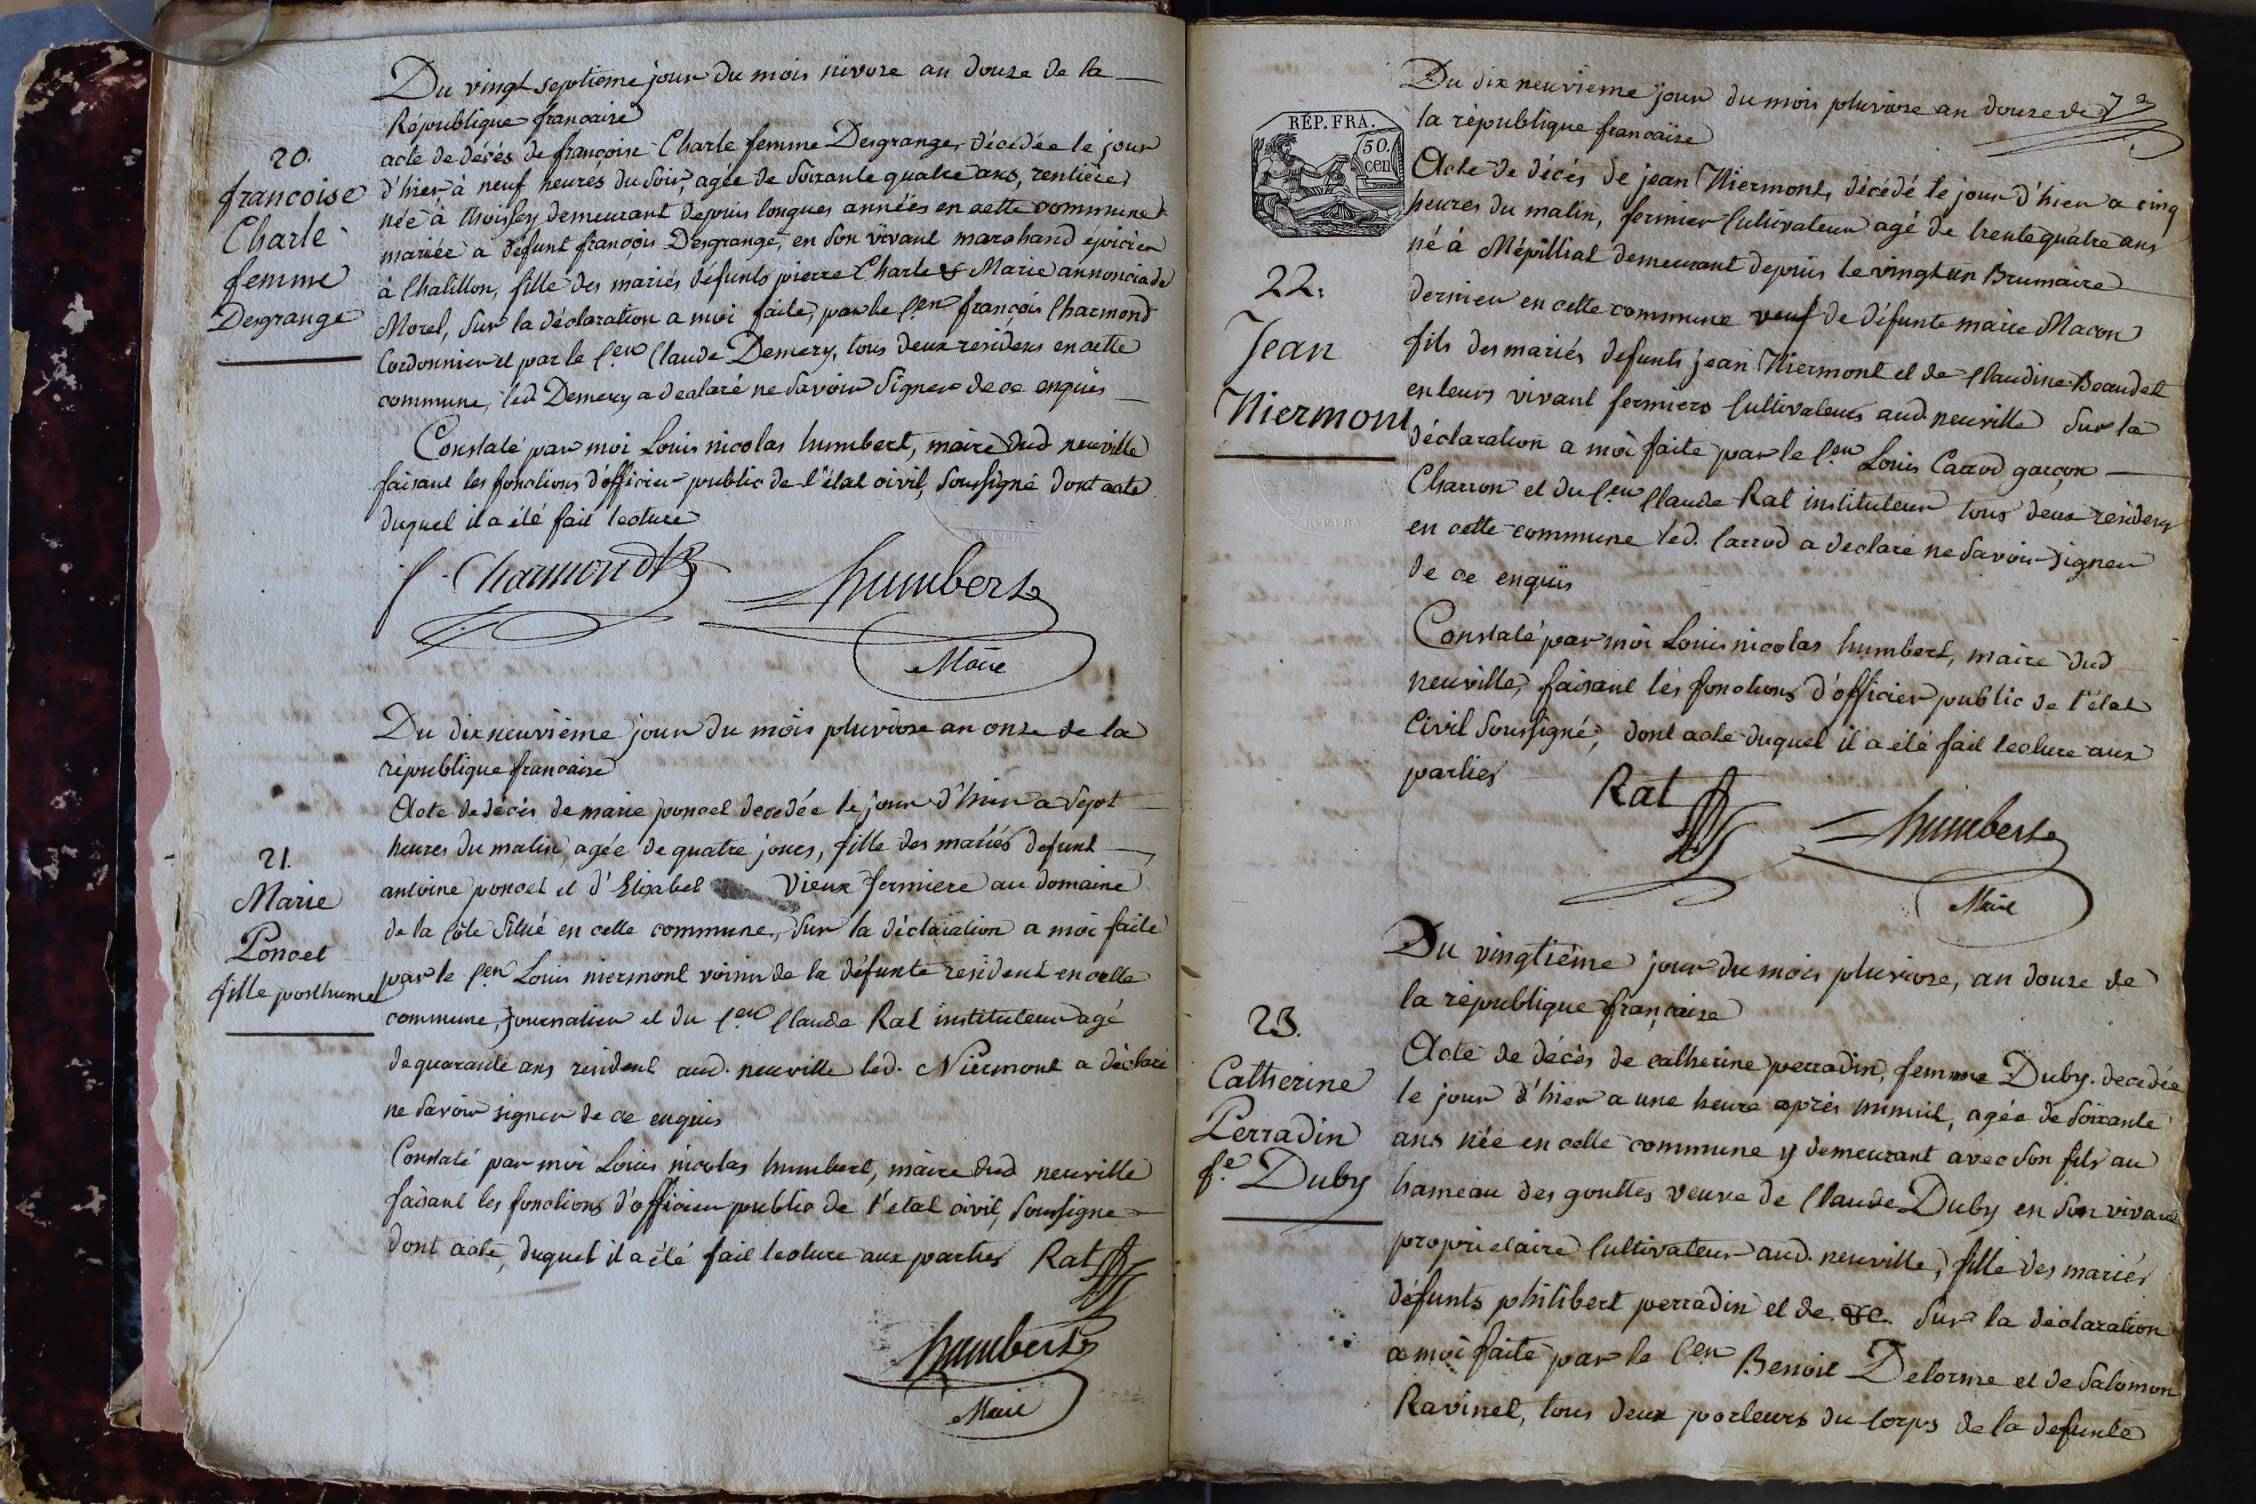 Du vingt septieme jour du mois nivose an douze de la
République francaise
20.
francoise
Charle
femme
Desgrange
acte de décés de françoise Charle femme Desgrange, décédée le jour
d'hier à neuf heures du soir, agée de soixante quatre ans, rentiere,
née à thoissey demeurant depuis longues années en cette commune
mariée a défunt françois Desgrange, en son vivant marchand épicier
à Chatillon, fille des mariés défunts pierre Charle & Marie annonciade
Morel, sur la déclaration a moi faite, par le Cen françois Charmond
Cordonnier et par le Cen Claude Demery, tous deux residens en cette
commune, led Demery a declaré ne savoir signer de ce enquis
Constaté par moi Louis nicolas humbert, maire dud neuville
faisant les fonctions d'officier public de l'état civil, soussigné dont acte
duquel il a été fait lecture
f. Charmond
humbert
Maire
Du dix neuvième jour du mois pluviose an onze de la
république francaise
21.
Marie
Poncet
fille posthume
Acte de décés de marie poncet decedée le jour d'hier a sept
heures du matin, agée de quatre jours, fille des mariés defunt
antoine poncet et d'Elizabet Vieux fermiere au domaine
de la Côte situé en cette commune, sur la déclaration a moi faite
par le Cen Louis niermont voisin de la défunte resident en cette
commune, journalier et du Cen Claude Rat instituteur agé
de quarante ans resident aud. neuville led. Niermont a déclaré
ne savoir signer de ce enquis
Constaté par moi Louis nicolas humbert, maire dud neuville
faisant les fonctions d'officier public de l'état civil, soussigné
dont acte, duquel il a été fait lecture aux parties Rat
humbert
Maire
Du dix neuvieme jour du mois pluviose an douze de
la république francaïse
RÉP. FRA.
50.
cen
22.
Jean
Niermont
Acte de décés de jean Niermont, décédé le jour d'hier a cinq
heures du matin, fermier Cultivateur agé de trente quatre ans
né à Mépilliat demeurant depuis le vingt un Brumaire
dernier en cette commune veuf de défunte marie Macon
fils des mariés defunts jean Niermont et de Claudine Beaudet
en leurs vivant fermiers Cultivateurs aud. neuville sur la
déclaration a moi faite par le Cen Louis Carrod garçon
Charron et du Cen Claude Rat instituteur tous deux residens
en cette commune led. Carrod a declaré ne savoir signer
de ce enquis
Constaté par moi Louis nicolas humbert, maire dud
neuville, faisant les fonctions d'officier public de l'état
Civil soussigné, dont acte duquel il a été fait lecture aux
parties
Rat
humbert
Maire
Du vingtiéme jour du mois pluviose, an douze de
la république française
23.
Catherine
Perradin
fe. Duby
Acte de décès de catherine perradin, femme Duby. decedée
le jour d'hier a une heure après minuit, agée de soixante
ans née en cette commune y demeurant avec son fils au
hameau des gouttes veuve de Claude Duby en son vivant
proprietaire Cultivateur aud. neuville, fille des mariés
défunts philibert perradin et de &c. sur la déclaration
a moi faite par le Cen Benoit Delorme et de Salomon
Ravinet, tous deux porteurs du Corps de la defunte